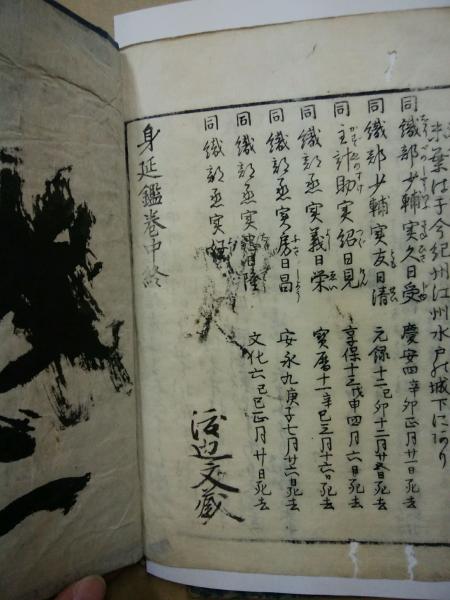 末葉は于今紀州江州水戸の城下にあり
同織部少輔実久日受 慶安四辛卯正月廿一日死去
同織部少輔実友日清 元禄十二己卯十二月廿五日死去
同主計助実紹日見 享保十三戊申四月六日死去
同織部丞実義日栄 宝暦十一辛巳三月十六日死去
同織部丞実房日昌 安永九庚子七月廿六日死去
同織部丞実 日隆 文化六己巳正月廿日死去
同織部丞実
身延鑑巻中終
渡辺文蔵